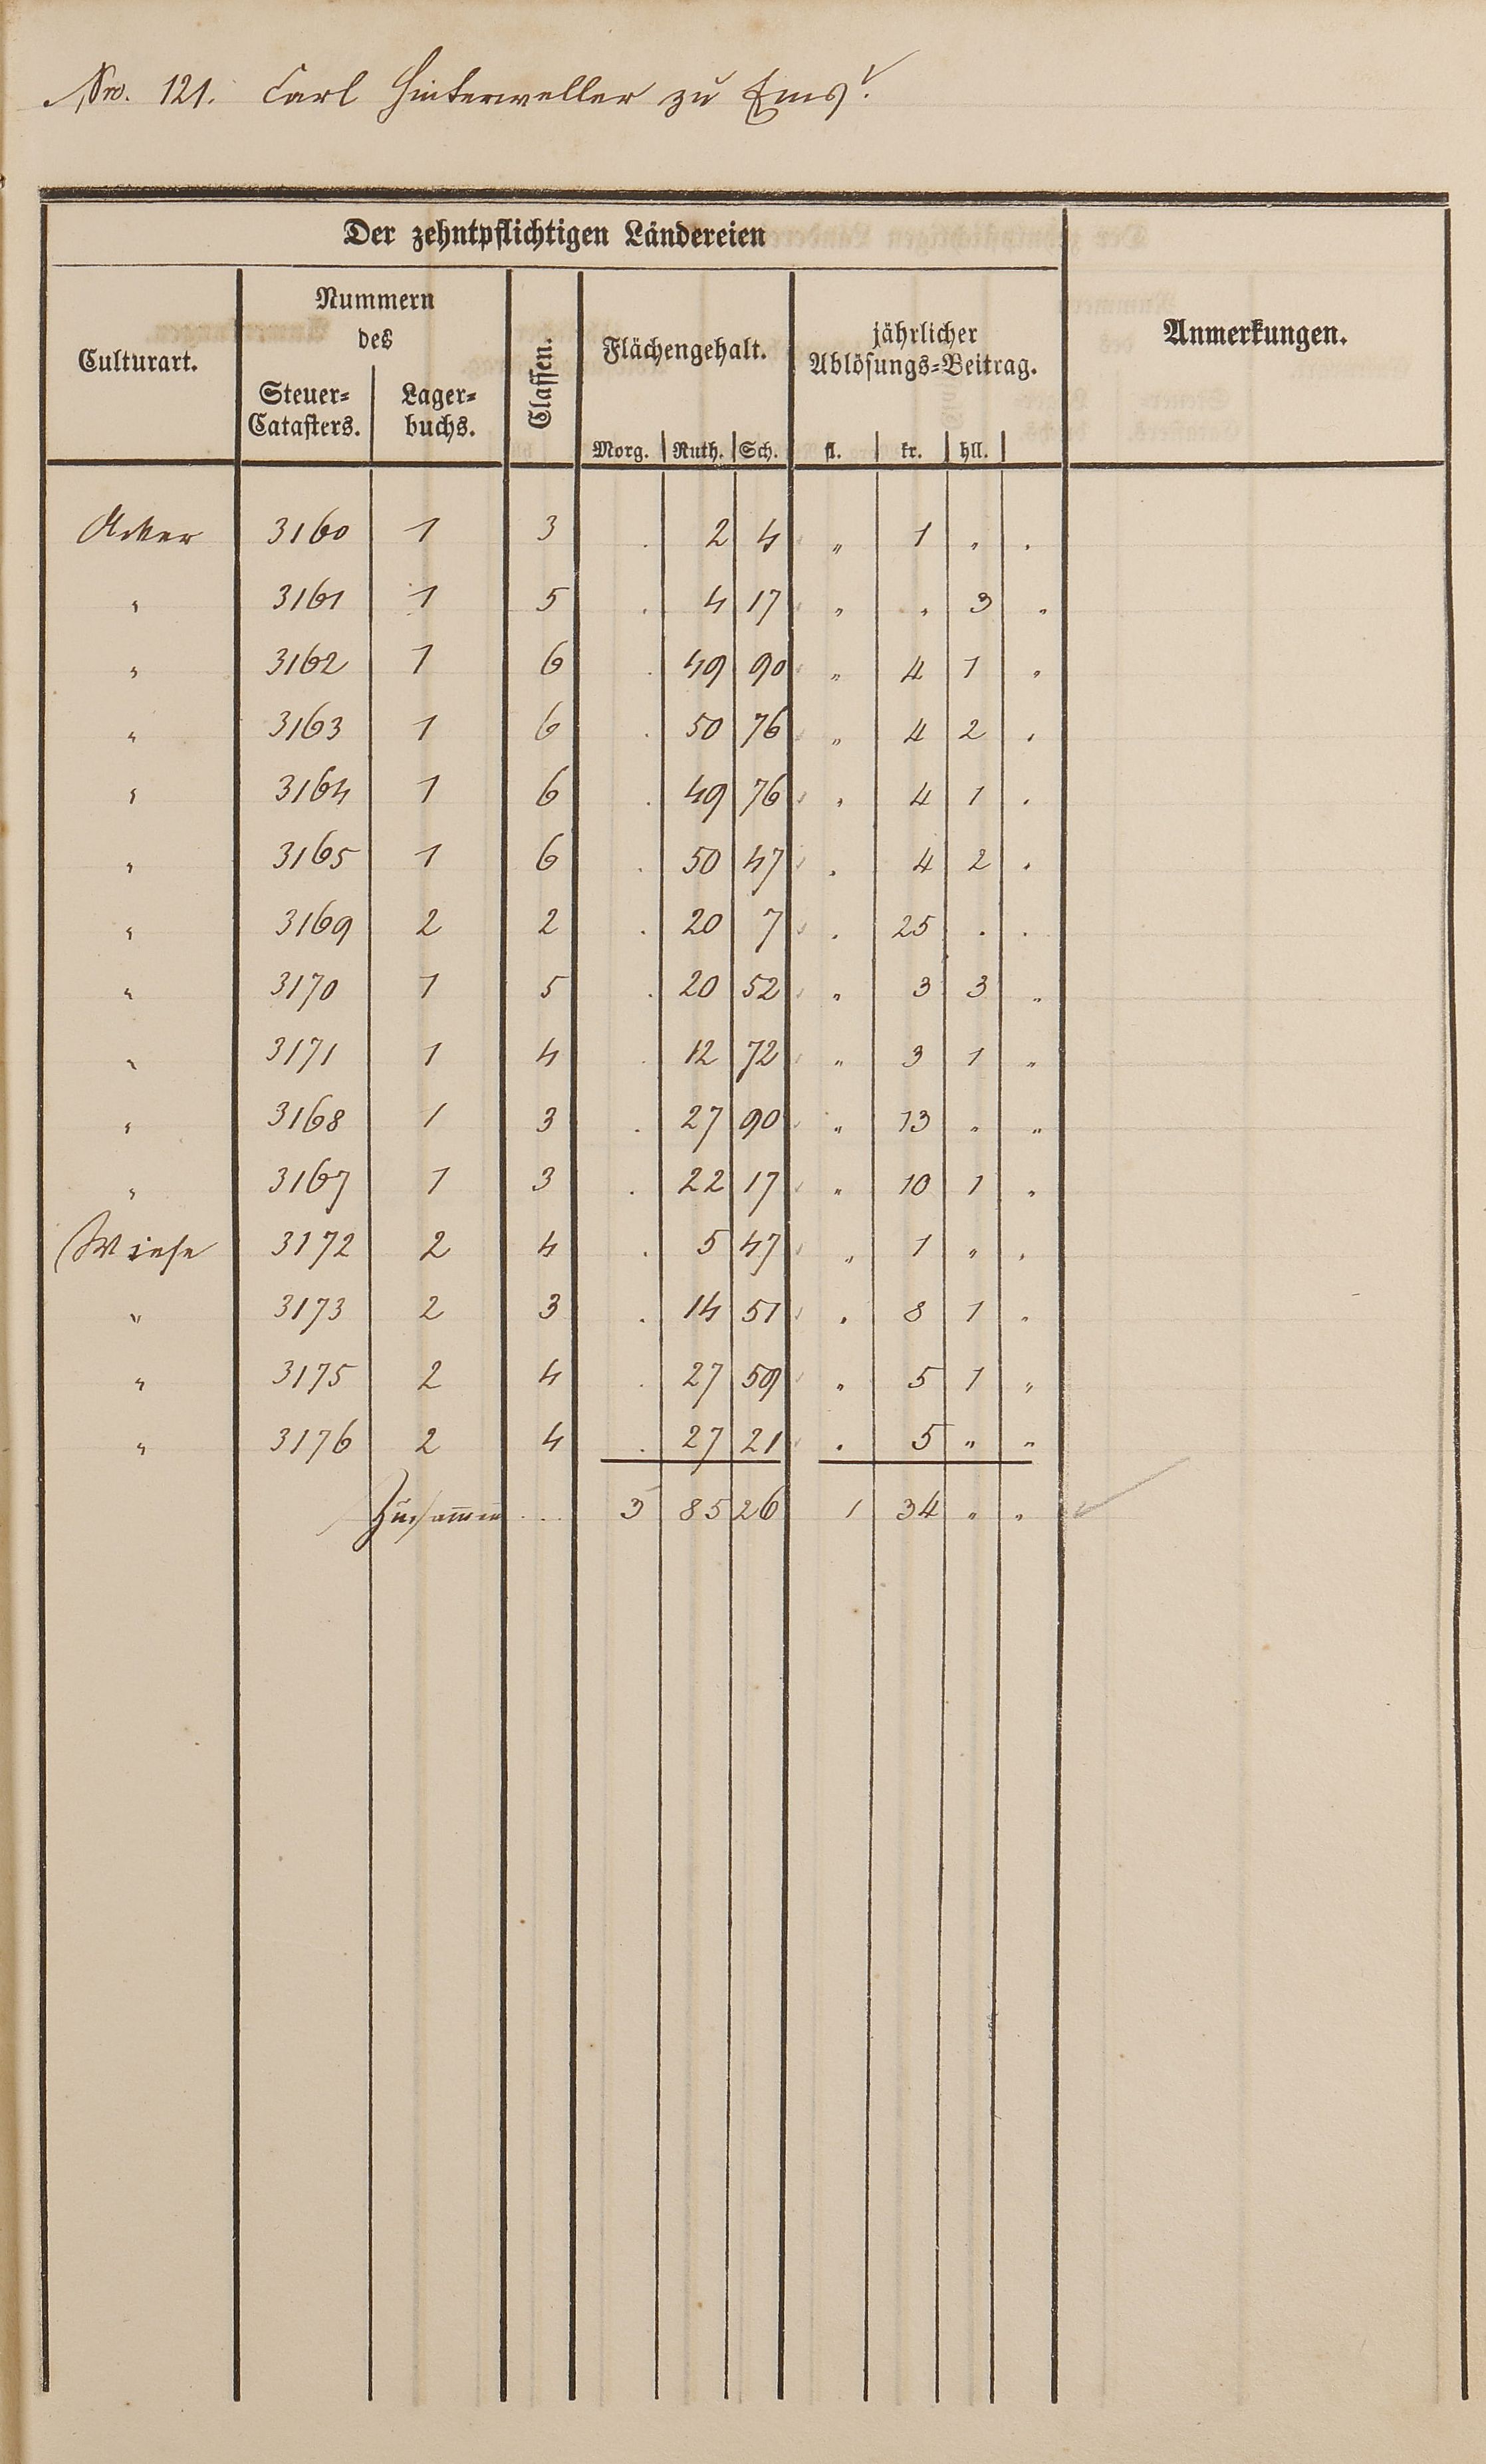 Nro. 121. Carl Hinterweller zu Ems.
Der zehntpflichtigen Ländereien
Culturart. Nummern des Steuer-Catasters. Lagerbuchs. Classen. Flächengehalt. Morg. Ruth. Sch. jährlicher Ablösungs-Beitrag. fl. kr. hll. Anmerkungen.
Acker 3160 1 3 . 2 4 „ 1 „ .
„ 3161 1 5 . 4 17 „ „ 3 „
„ 3162 1 6 . 49 90 „ 4 1 „
„ 3163 1 6 . 50 76 „ 4 2 „
„ 3164 1 6 . 49 76 „ 4 1 .
„ 3165 1 6 . 50 47 . 4 2 .
„ 3169 2 2 . 20 7 . 25 . .
„ 3170 1 5 . 20 52 „ 3 3 „
„ 3171 1 4 . 12 72 „ 3 1 „
„ 3168 1 3 . 27 90 „ 13 „ „
„ 3167 1 3 . 22 17 „ 10 1 „
Wiese 3172 2 4 . 5 47 „ 1 „ .
„ 3173 2 3 . 14 51 . 8 1 „
„ 3175 2 4 . 27 59 „ 5 1 „
„ 3176 2 4 . 27 21 . 5 „ „
Zusammen ... 3 85 26 1 34 „ „